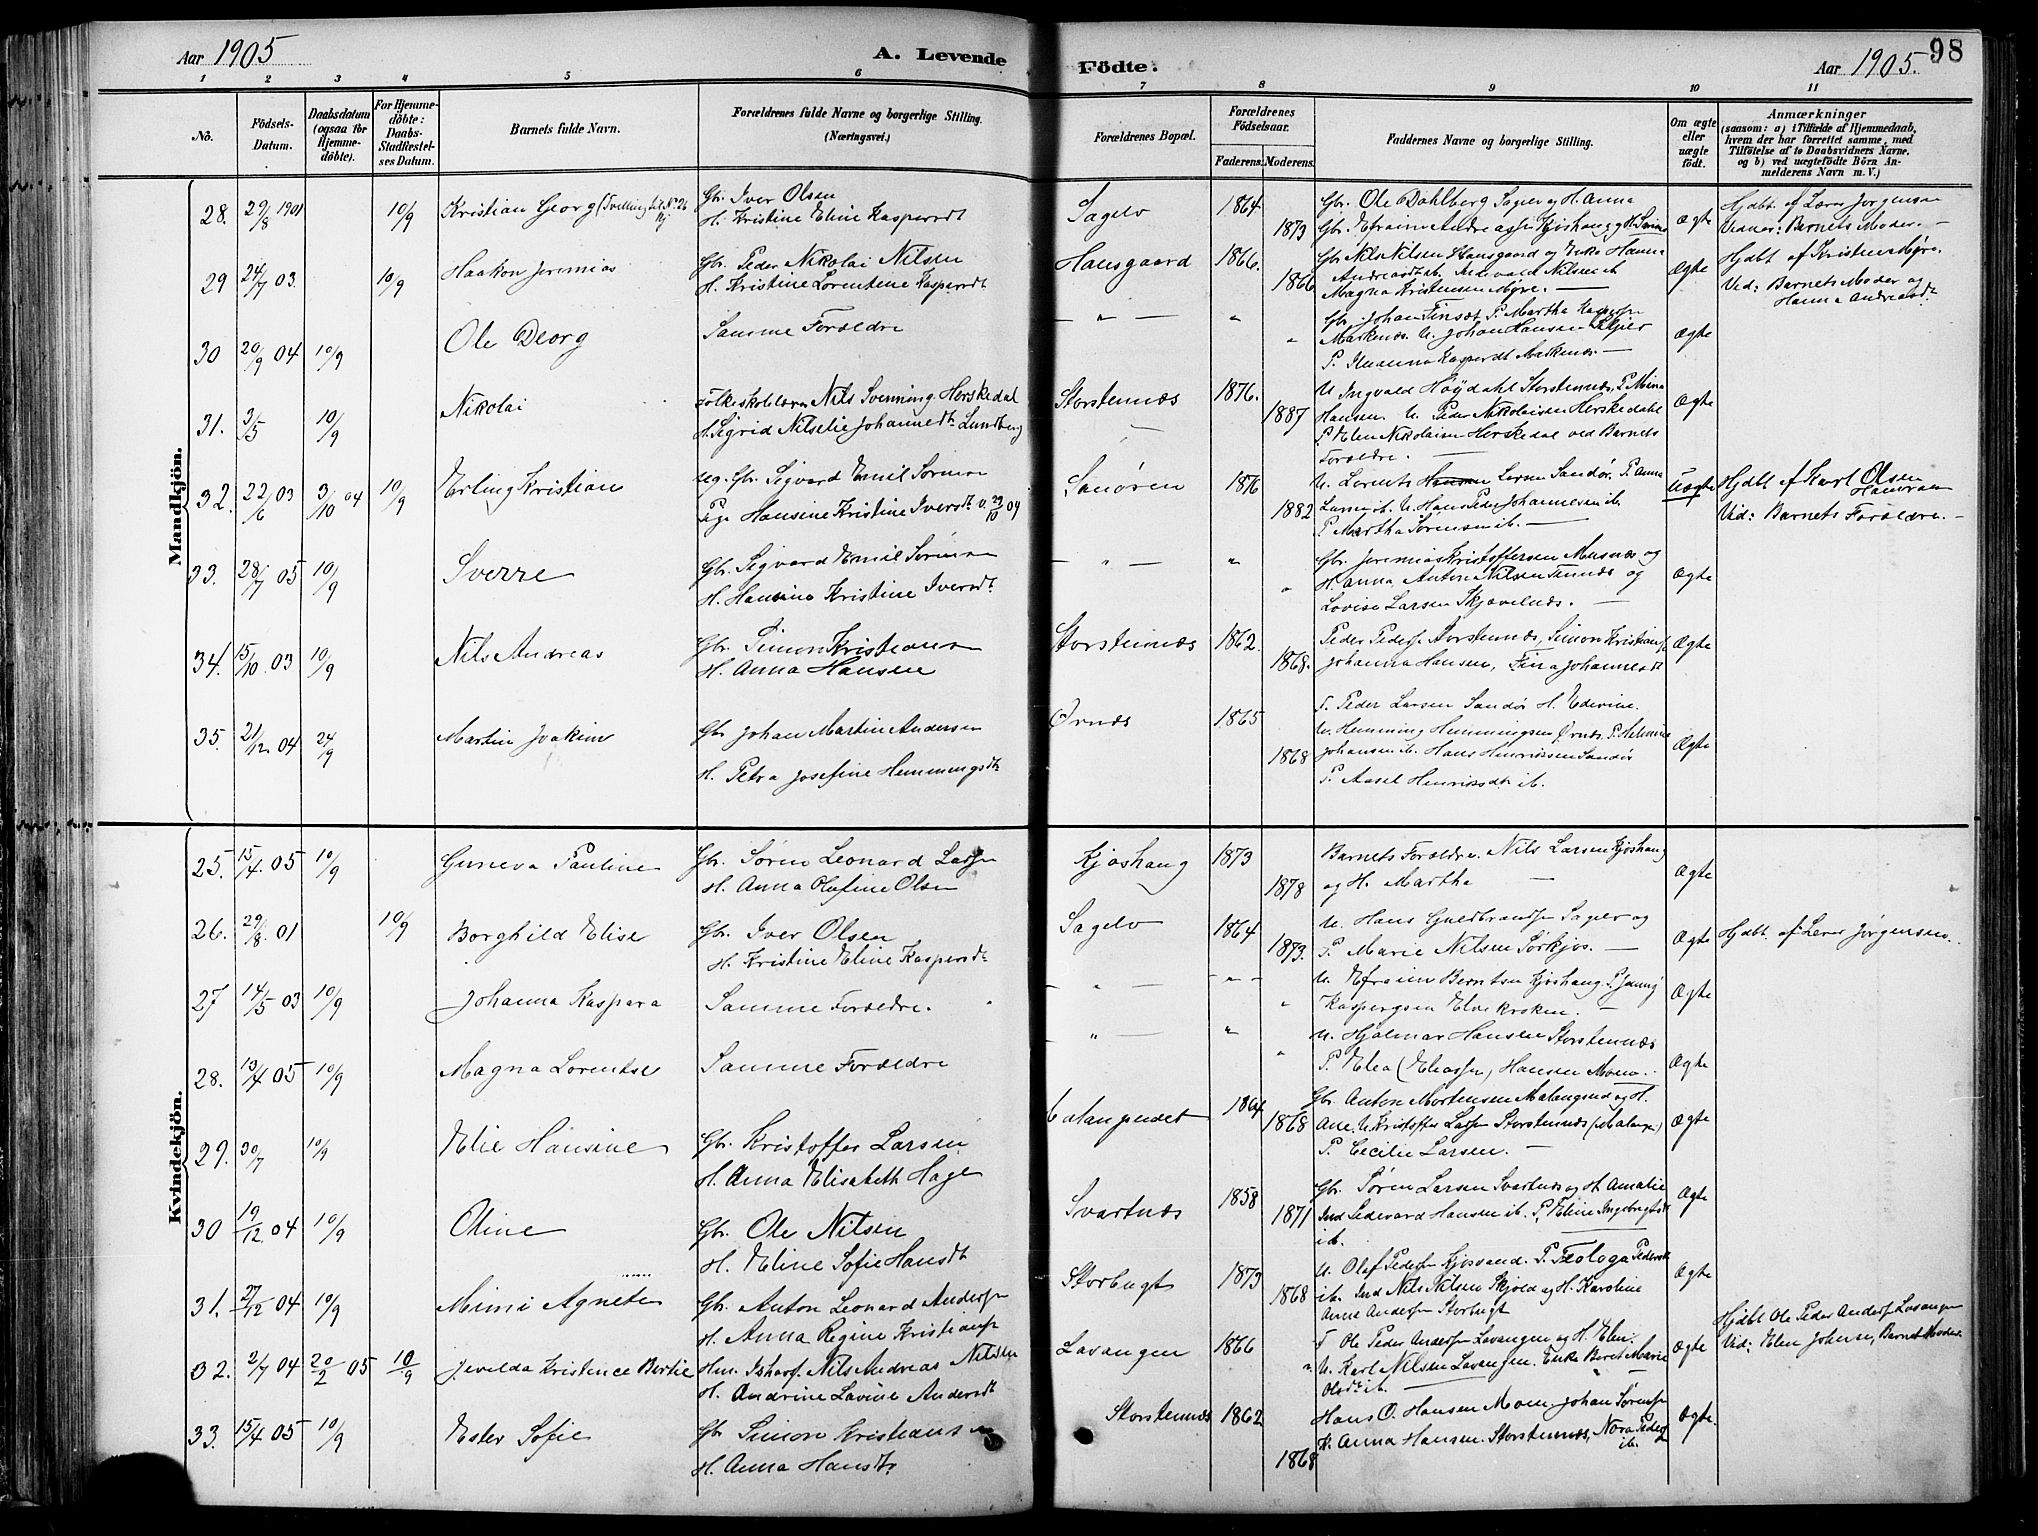 Aar 1905
A. Levende Födte.
Aar 1905.
98
1 2 3 4 5 6 7 8 9 10 11
No.
Födsels-Datum.
Daabsdatum (ogsaa for Hjemme-döbte).
For Hjemme-döbte: Daabs-Stadfæstel-ses Datum.
Barnets fulde Navn.
Forældrenes fulde Navne og borgerlige Stilling.
(Næringsvei.)
Forældrenes Bopæl.
Forældrenes Födselsaar.
Faderens. Moderens.
Faddernes Navne og borgerlige Stilling.
Om ægte eller uægte födt.
Anmærkninger
(saasom: a) i Tilfælde af Hjemmedaab,
hvem der har forrettet samme, med
Tilföielse af to Daabsvidners Navne,
og b) ved uægtefödte Börn An-
melderens Navn m. V.)
Mandkjön.
28. 29/8 1901 10/9 Kristian Georg
Gbr. Iver Olsen
H. Kristine Eline Kaspersdt
Sagelv 1864 1873
Gbr. Ole Dahlberg Sagelv og H. Anna
Gbr. Efraim Andreassen Kjoshaug og H.
Ægte
Hjdbt. af Lærer Jørgensen
Vidner: Barnets Moder. —
29 24/7 03. 10/9 Haakon Jeremias
Gbr. Peder Nikolai Nilsen
H. Kristine Lorentine Kaspersdt
Hansgaard 1866. 1866
Gbr. Nils Nilsen Hansgaard og Enke Hanna
Andreasdt ib. Ingvald Nilsen ib
Magna Kristensen Myre. —
Ægte
Hjdbt af Kristine Myre.
Vid: Barnets Moder og
Hanna Andreasdt.
30 20/9 04 10/9 Ole Georg
Samme Forældre
— " — " "
Gbr. Johan Tinsæt P. Martha Kaspersen
Markenæs. U. Johan Hansen
P. Kaspersdt Markenæs. —
Ægte
31. 3/5 10/9 Nikolai
Folkeskolelærer Nils Svenning Herskedal
H. Sigrid Nilselie Johannesdt. Lundberg
Storstennæs 1876. 1887
U. Ingvald Høydahl Storstennæs. P. Mina
Hansen. U. Peder Nikolaisen Herskedahl
P. Elen Nikolaisen Herskedal ved Barnets
Forældre. —
Ægte
32. 22/6 03 3/10 04 10/9 Erling Kristian
Ug. Gbr. Sigvard Emil Sørensen
Pige Hansine Kristine Iversdt. v. 23/10 04
Sanøren 1876 1882
U. Lorents Hansen Larsen Sandør. P. Anna
Larsen ib. U. Hans Peder Johannesen ib.
P. Martha Sørensen ib. —
Uægte
Hjdbt af Karl Olsen
Hamran
Vid: Barnets Forældre. —
33. 28/7 05 10/9 Sverre
Gbr. Sigvard Emil Sørensen
H. Hansine Kristine Iversdt.
— " — " "
Gbr. Jeremias Kristoffersen Masnæs og
H. Anna, Anton Nilsen og
Lovise Larsen Skjævelnæs. —
Ægte
34. 15/10 03 10/9 Nils Andreas
Gbr. Simon Kristiansen
H. Anna Hansen
Storstennæs 1862. 1868.
Peder Pedersen Storstennæs, Simon Kristiansen
Johanna Hansen, Fina Johannesdt
Ægte
35. 21/12 04 24/9 Martin Joakim
Gbr Johan Martin Andersen
H. Petra Josefine Hemmingsdt.
Ørnæs 1865 1868
F. Peder Larsen Sandør H. Edevine.
U. Hemming Hemmingsen Ørnæs. P. Helmine
Johansen U. Hans Henriksen Sandør
P. Aasel Henriksdt ib.
Ægte
Kvindekjön.
25. 15/4 05 10/9 Guneva Pauline
Gbr. Søren Leonard Larsen
H. Anna Olufine Olsen
Kjoshaug 1873 1878
Barnets Forældre. Nils Larsen Kjoshaug
og H. Martha —
Ægte
26. 29/8 01 10/9 Borghild Elise
Gbr. Iver Olsen
H. Kristine Eline Kaspersdt.
Sagelv 1864 1873.
U. Hans Guldbrandsen Sagelv og
P. Marie Nilsen Sørkjos. —
Ægte
Hjdbt. af Lærer Jørgensen.
27 14/5 03 10/9 Johanna Kaspara
Samme Forældre.
— " — " "
U. Efraim Berntsen Kjoshaug P. Jenny
Kaspersen Elvekroken. —
Ægte
28. 13/4 05 10/9 Magna Lorentse
Samme Forældre
" — " "
U. Hjalmar Hansen Storstennæs
P. Elea (Eliassen) Hansen Moen.
Ægte
29. 30/7 10/9 Elie Hansine
Gbr. Kristoffer Larsen
H. Anna Elisabeth Hage
Malangseidet 1864 1868
Gbr. Anton Mortensen Malangseid og H.
Ane. U. Kristoffer Larsen Storstennæs (Malangen)
P. Cecilie Larsen. —
Ægte
30 19/12 04 10/9 Oline
Gbr. Ole Nilsen
H. Eline Sofie Hansdt
Svartnæs 1858 1871
Gbr. Søren Larsen Svartnæs og H. Amalie
Ind Edevard Hansen ib. P. Eline Ingebrigtsdt
ib.
Ægte
31. 27/12 04 10/9 Mimi Agnete
Gbr. Anton Leonard Andersen
H. Anna Regine Kristiansen
Storbugt 1873 1868
U. Olaf Pedersen Kjosvand. P. Teologa Pedersen
ib. Ind Nils Nilsen Skjold og H. Karoline
Anne Andersen Storbugt
Ægte
32. 2/7 04 20/2 05 10/9 Jevelda Kristence Bertie
Hm. Nils Andreas Nilsen
H. Andrine Lavine Andersdt
Lavangen 1866 "
F Ole Peder Andersen Lavangen og H. Elen.
U. Karl Nilsen Lavangen. Enke Beret Marie
Olsdt ib.
Ægte
Hjdbt Ole Peder Andersen Lavangen
Vid: Elen Johnsen, Barnets Moder.
33. 15/4 05 10/9 Ester Sofie
Gbr Simon Kristiansen
H. Anna Hansdt.
Storstennæs 1862 1868
Hans O. Hansen Moen. Johan Sørensen
H. Anna Hansen. Storstennæs, Nora Pedersen
ib.
Ægte.